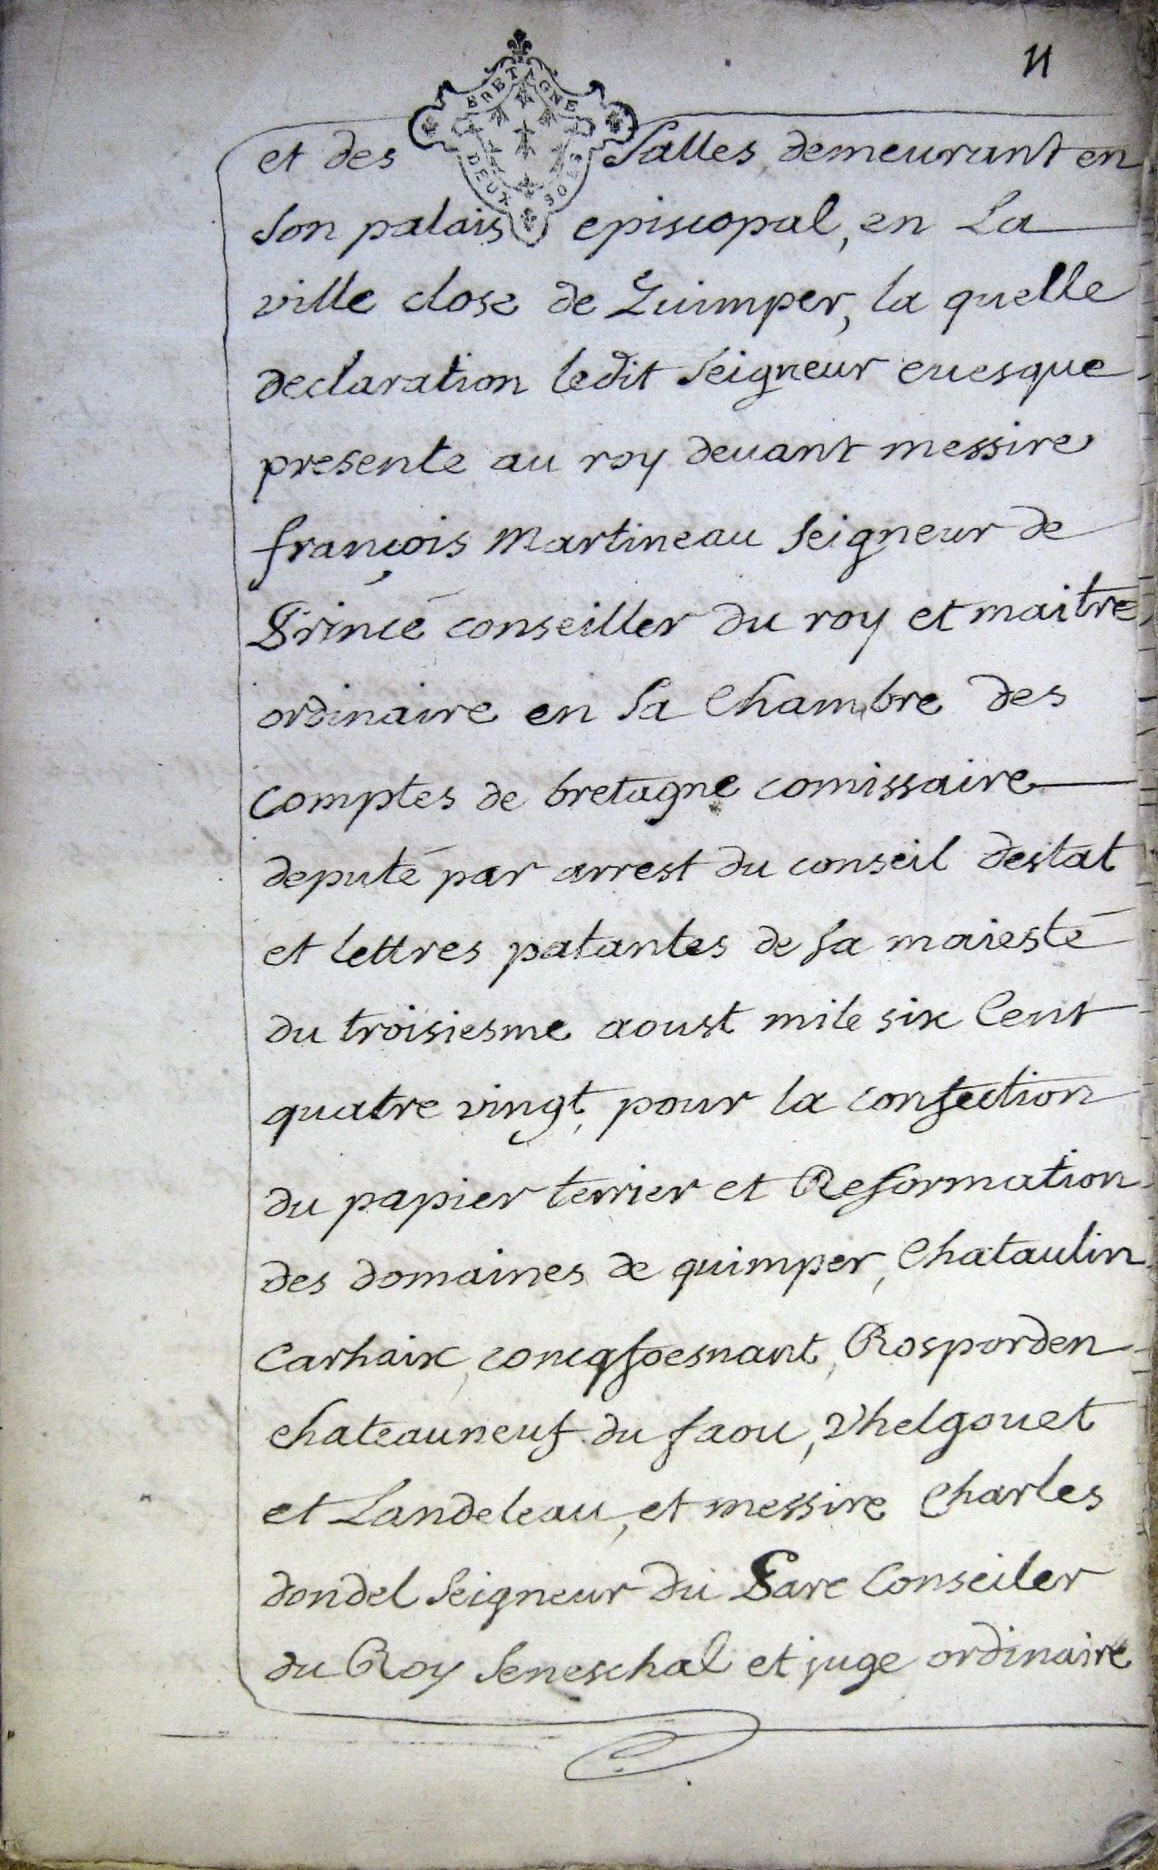 11
BRETAGNE
DEUX SOLS
et des Salles demeurant en
son palais episcopal, en La
ville close de Quimper, la quelle
declaration ledit seigneur euesque
presente au roy deuant messire
françois Martineau seigneur de
Princé conseiller du roy et maitre
ordinaire en sa Chambre des
comptes de bretagne comissaire
deputé par arrest du conseil destat
et lettres patantes de sa maiesté
du troisiesme aoust mile six Cent
quatre vingt, pour la confection
du papier terrier et Reformation
des domaines de quimper, Chataulin
Carhaix, concqfoesnant, Rosporden
chateauneuf du faou, Vhelgouet
et Landeleau, et messire Charles
dondel seigneur du Parc Conseiler
du Roy seneschal et juge ordinaire